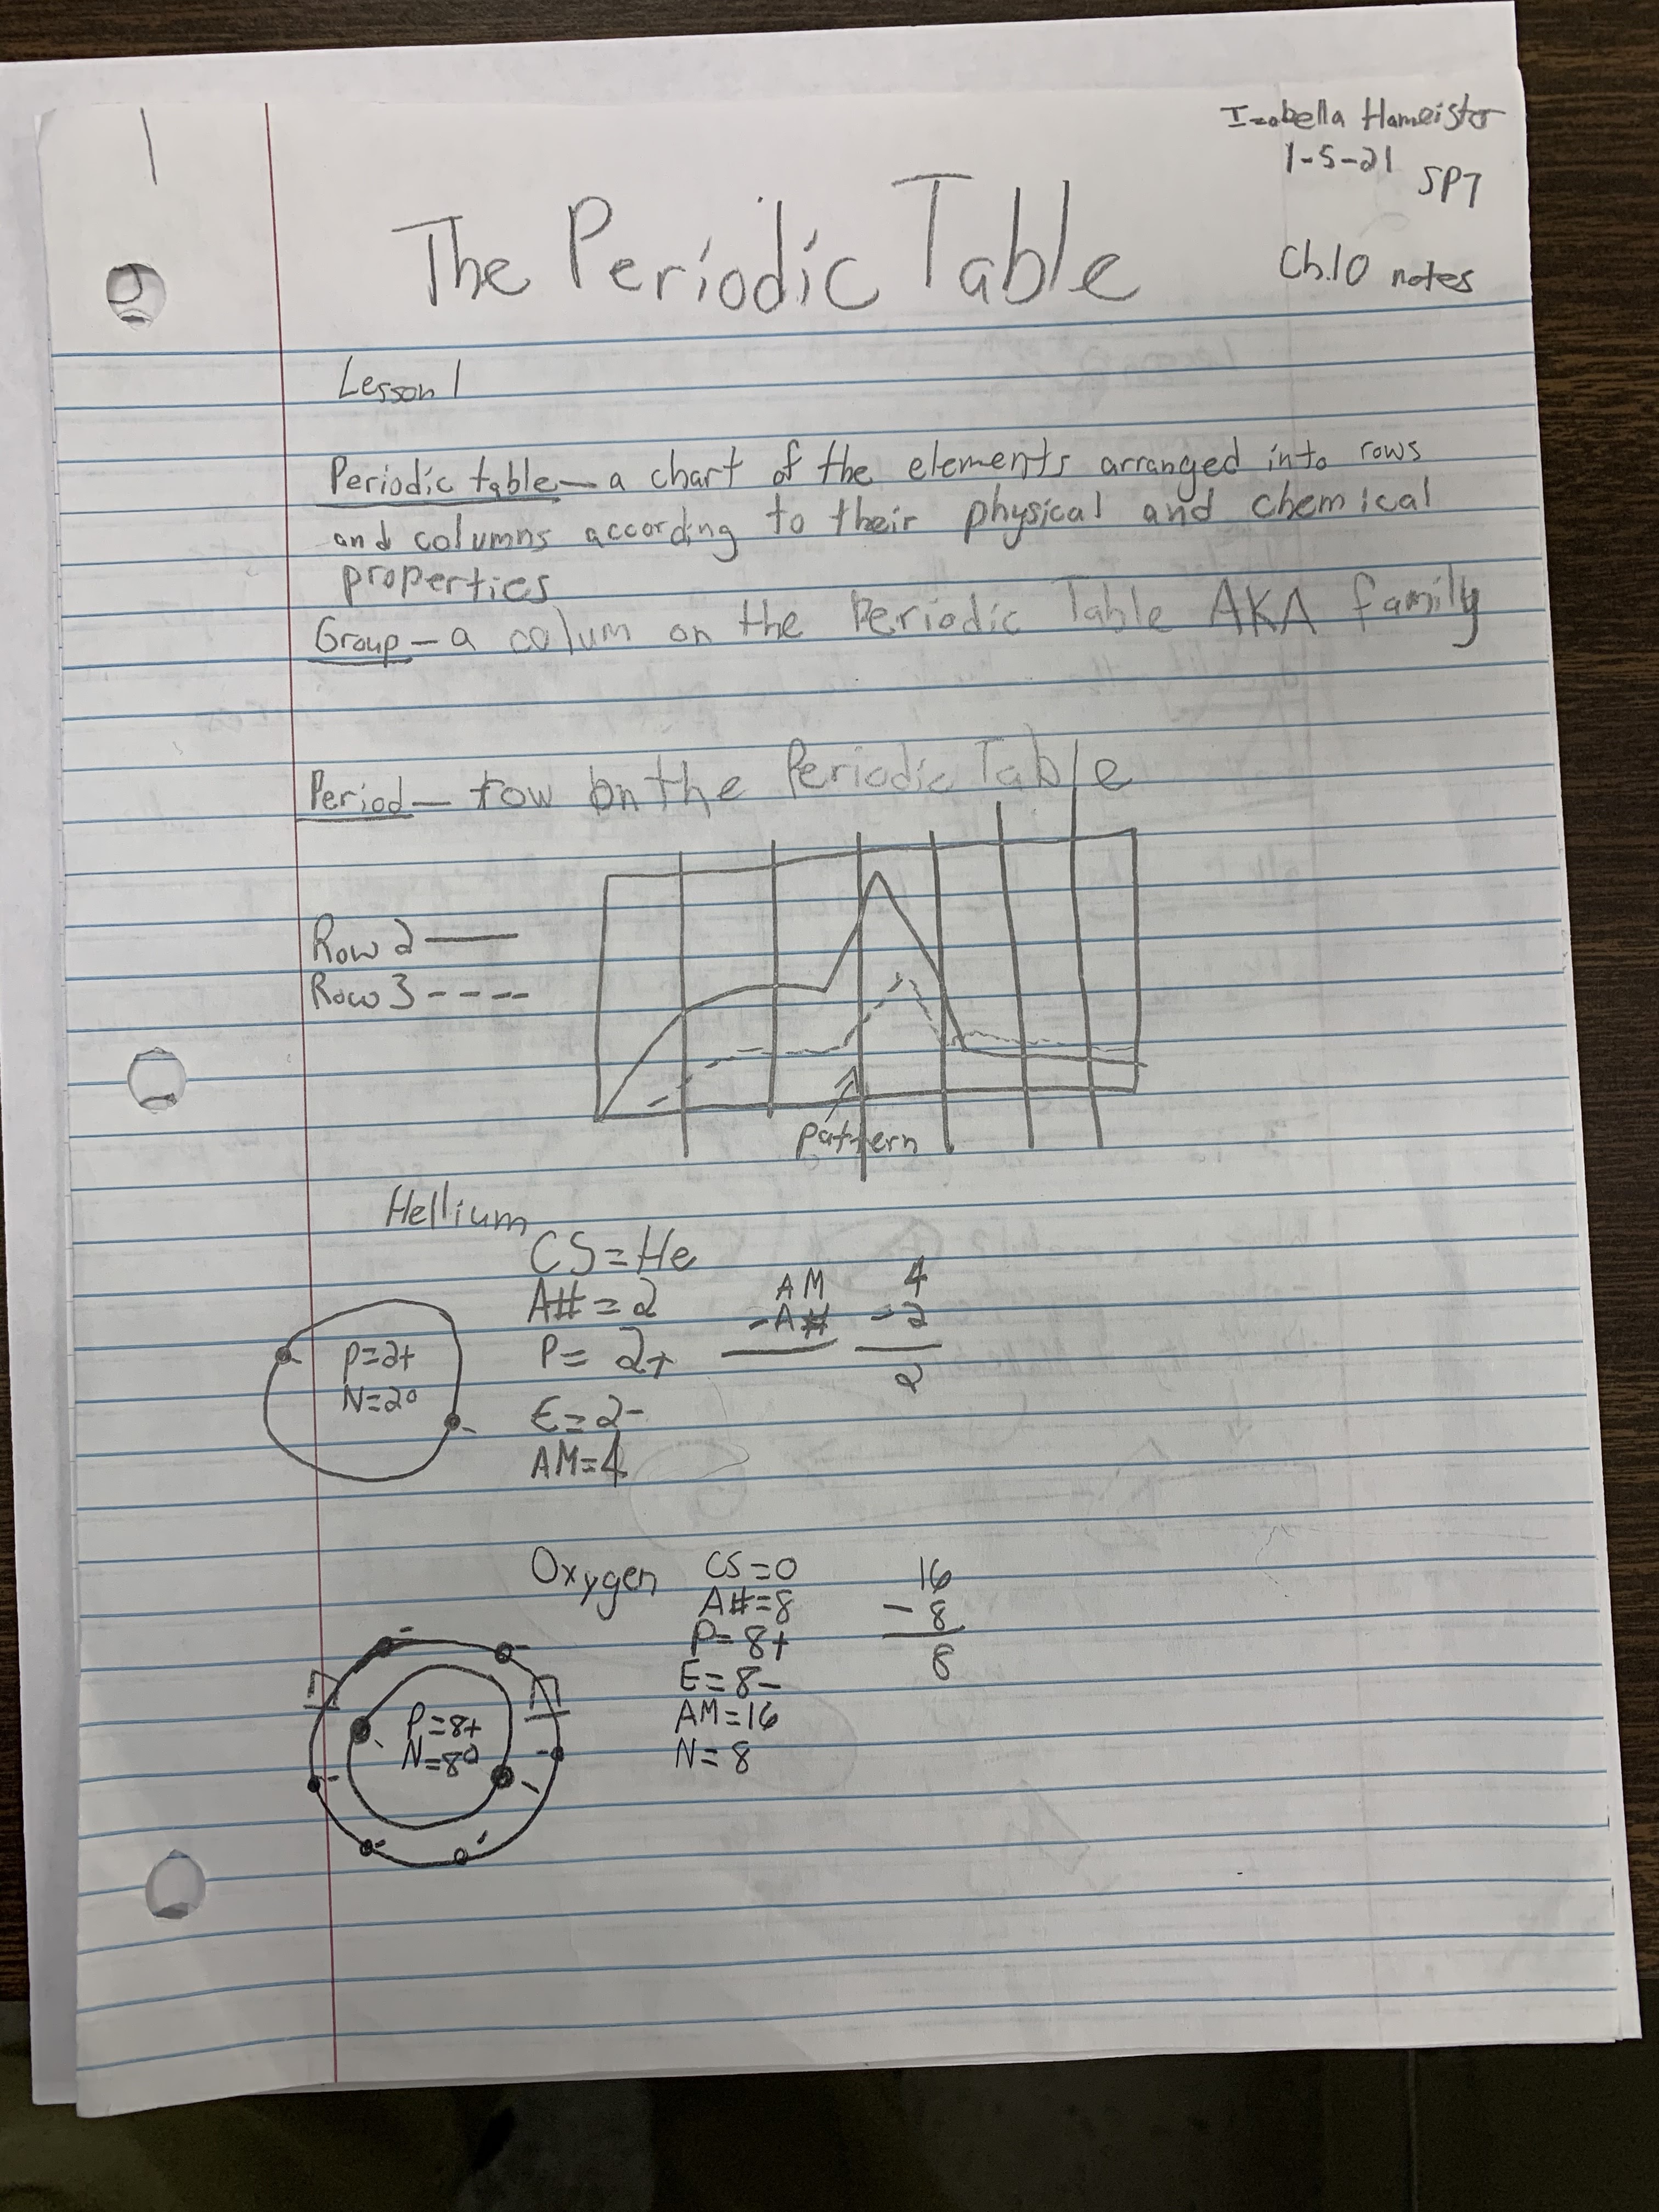 1
Izabella Hameister
1-5-21
SP7
The Periodic Table
Ch.10 notes
Lesson 1
Periodic table — a chart of the elements arranged into rows
and columns according to their physical and chemical
properties
Group — a colum on the Periodic Table AKA family
Period — row on the Periodic Table
Row 2 ———
Row 3 - - - -
pattern
Hellium
CS=He
A#=2
P= 2+
E=2-
AM=4
AM 4
-A# -2
2
P=2+
N=2⁰
Oxygen
CS=O
A#=8
P=8+
E=8-
AM=16
N=8
16
-8
8
P=8+
N=8⁰